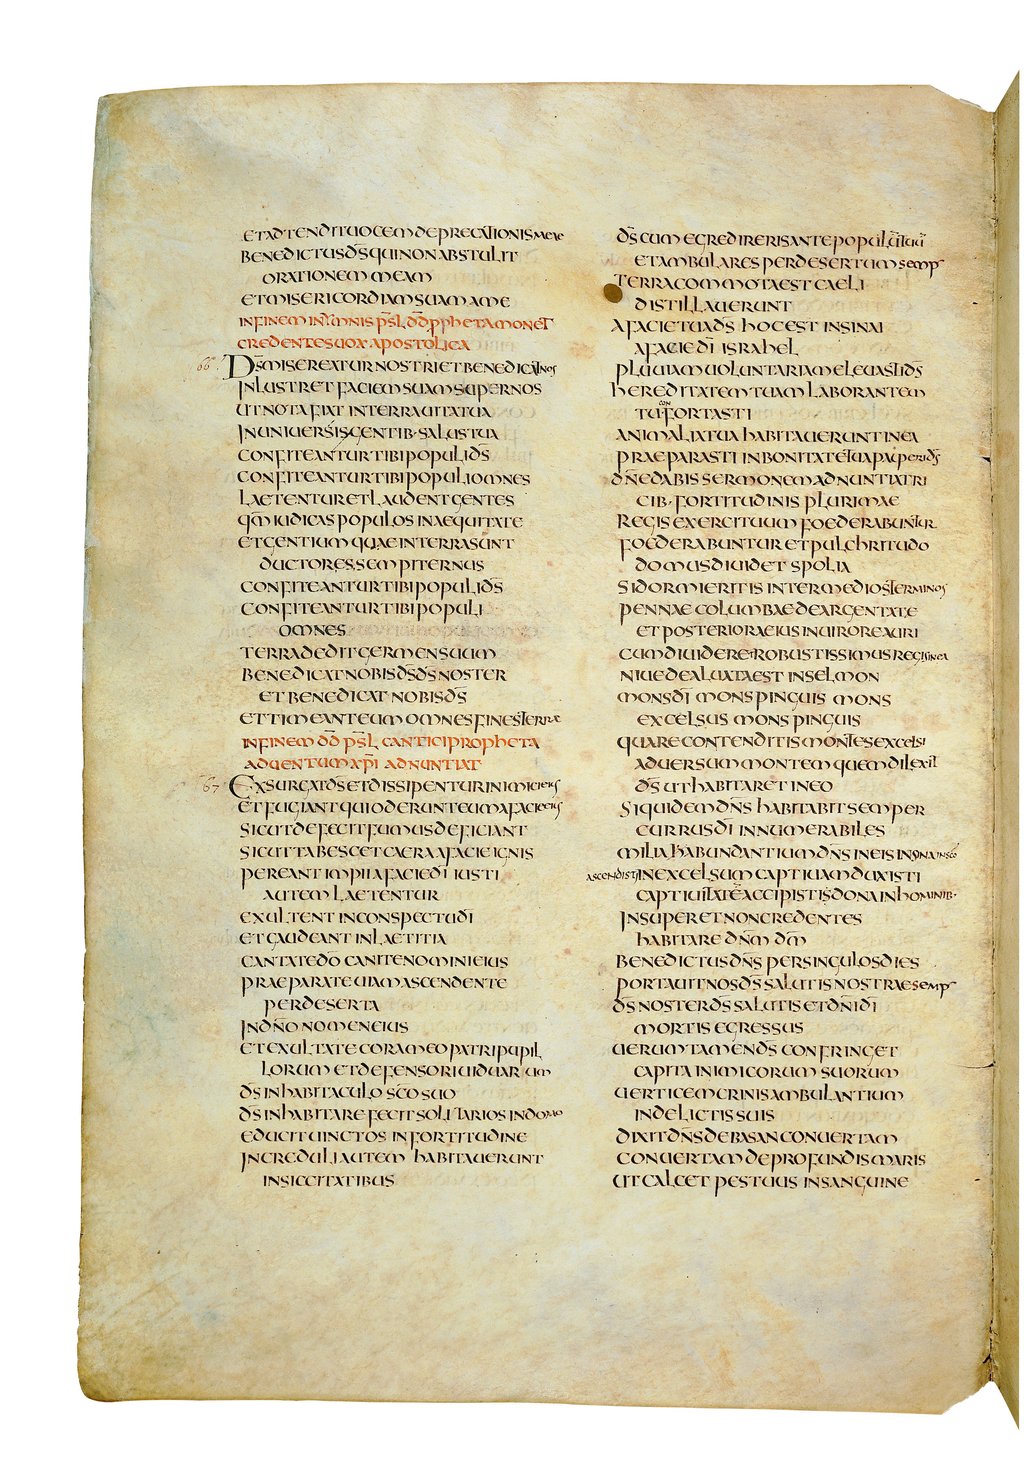 ET ADTENDIT UOCEM DEPRECATIONIS MEAE
BENEDICTUS D̄S QUI NON ABSTULIT
ORATIONEM MEAM
ET MISERICORDIAM SUAM A ME
IN FINEM IN YMNIS PSL DD PPHETA MONET
CREDENTES UOX APOSTOLICA
66 D̄S MISEREATUR NOSTRI ET BENEDICAT NOS
INLUSTRET FACIEM SUAM SUPER NOS
UT NOTA FIAT IN TERRA UIA TUA
IN UNIUERSIS GENTIB· SALUS TUA
CONFITEANTUR TIBI POPULI D̄S
CONFITEANTUR TIBI POPULI OMNES
LAETENTUR ET LAUDENT GENTES
QM̄ IUDICAS POPULOS IN AEQUITATE
ET GENTIUM QUAE IN TERRA SUNT
DUCTOR ES SEMPITERNUS
CONFITEANTUR TIBI POPULI D̄S
CONFITEANTUR TIBI POPULI
OMNES
TERRA DEDIT GERMEN SUUM
BENEDICAT NOBIS D̄S D̄S NOSTER
ET BENEDICAT NOBIS D̄S
ET TIMEANT EUM OMNES FINES TERRAE
IN FINEM DD PSL CANTICI PROPHETA
ADUENTUM XPI ADNUNTIAT
67 EXSURGAT D̄S ET DISSIPENTUR INIMICI EIUS
ET FUGIANT QUI ODERUNT EUM A FACIE EIUS
SICUT DEFECIT FUMUS DEFICIANT
SICUT TABESCET CAERA A FACIE IGNIS
PEREANT IMPII A FACIE DĪ IUSTI
AUTEM LAETENTUR
EXULTENT IN CONSPECTU DĪ
ET GAUDEANT IN LAETITIA
CANTATE DŌ CANITE NOMINI EIUS
PRAEPARATE UIAM ASCENDENTE
PER DESERTA
IN DN̄O NOMEN EIUS
ET EXULTATE CORAM EO PATRI PUPIL
LORUM ET DEFENSORI UIDUARUM
D̄S IN HABITACULO SC̄O SUO
D̄S INHABITARE FECIT SOLITARIOS IN DOMO
EDUCIT UINCTOS IN FORTITUDINE
INCREDULI AUTEM HABITAUERUNT
IN SICCITATIBUS
D̄S CUM EGREDIRERIS ANTE POPULŪ TUŪ
ET AMBULARES PER DESERTUM SEMP
TERRA COMMOTA EST CAELI
DISTILLAUERUNT
A FACIE TUA D̄S HOC EST IN SINAI
A FACIE DĪ ISRAHEL
PLUUIAM UOLUNTARIAM ELEUASTI D̄S
HEREDITATEM TUAM LABORANTEM
TU CONFORTASTI
ANIMALIA TUA HABITAUERUNT IN EA
PRAEPARASTI IN BONITATE TUA PAUPERI D̄S
DN̄E DABIS SERMONEM ADNUNTIATRI
CIB· FORTITUDINIS PLURIMAE
REGIS EXERCITUUM FOEDERABUNTUR
FOEDERABUNTUR ET PULCHRITUDO
DOMUS DIUIDET SPOLIA
SI DORMIERITIS INTER MEDIOS TERMINOS
PENNAE COLUMBAE DEARGENTATE
ET POSTERIORA EIUS IN UIRORE AURI
CUM DIUIDERET ROBUSTISSIMUS REGIS IN EA
NIUE DEALUATA EST IN SELMON
MONS DĪ MONS PINGUIS MONS
EXCELSUS MONS PINGUIS
QUARE CONTENDITIS MONTES EXCELSI
ADUERSUM MONTEM QUEM DILEXIT
D̄S UT HABITARET IN EO
SIQUIDEM DN̄S HABITABIT SEMPER
CURRUS DĪ INNUMERABILES
MILIA HABUNDANTIUM DN̄S IN EIS IN SINA IN SC̄O
ASCENDISTI IN EXCELSUM CAPTIUAM DUXISTI
CAPTIUITATĒ ACCIPISTIS DONA IN HOMINIB·
INSUPER ET NON CREDENTES
HABITARE DN̄M DM̄
BENEDICTUS DN̄S PER SINGULOS DIES
PORTAUIT NOS D̄S SALUTIS NOSTRAE SEMP
D̄S NOSTER D̄S SALUTIS ET DN̄I DĪ
MORTIS EGRESSUS
UERUMTAMEN D̄S CONFRINGET
CAPITA INIMICORUM SUORUM
UERTICEM CRINIS AMBULANTIUM
IN DELICTIS SUIS
DIXIT DN̄S DE BASAN CONUERTAM
CONUERTAM DE PROFUNDIS MARIS
UT CALCET PES TUUS IN SANGUINE